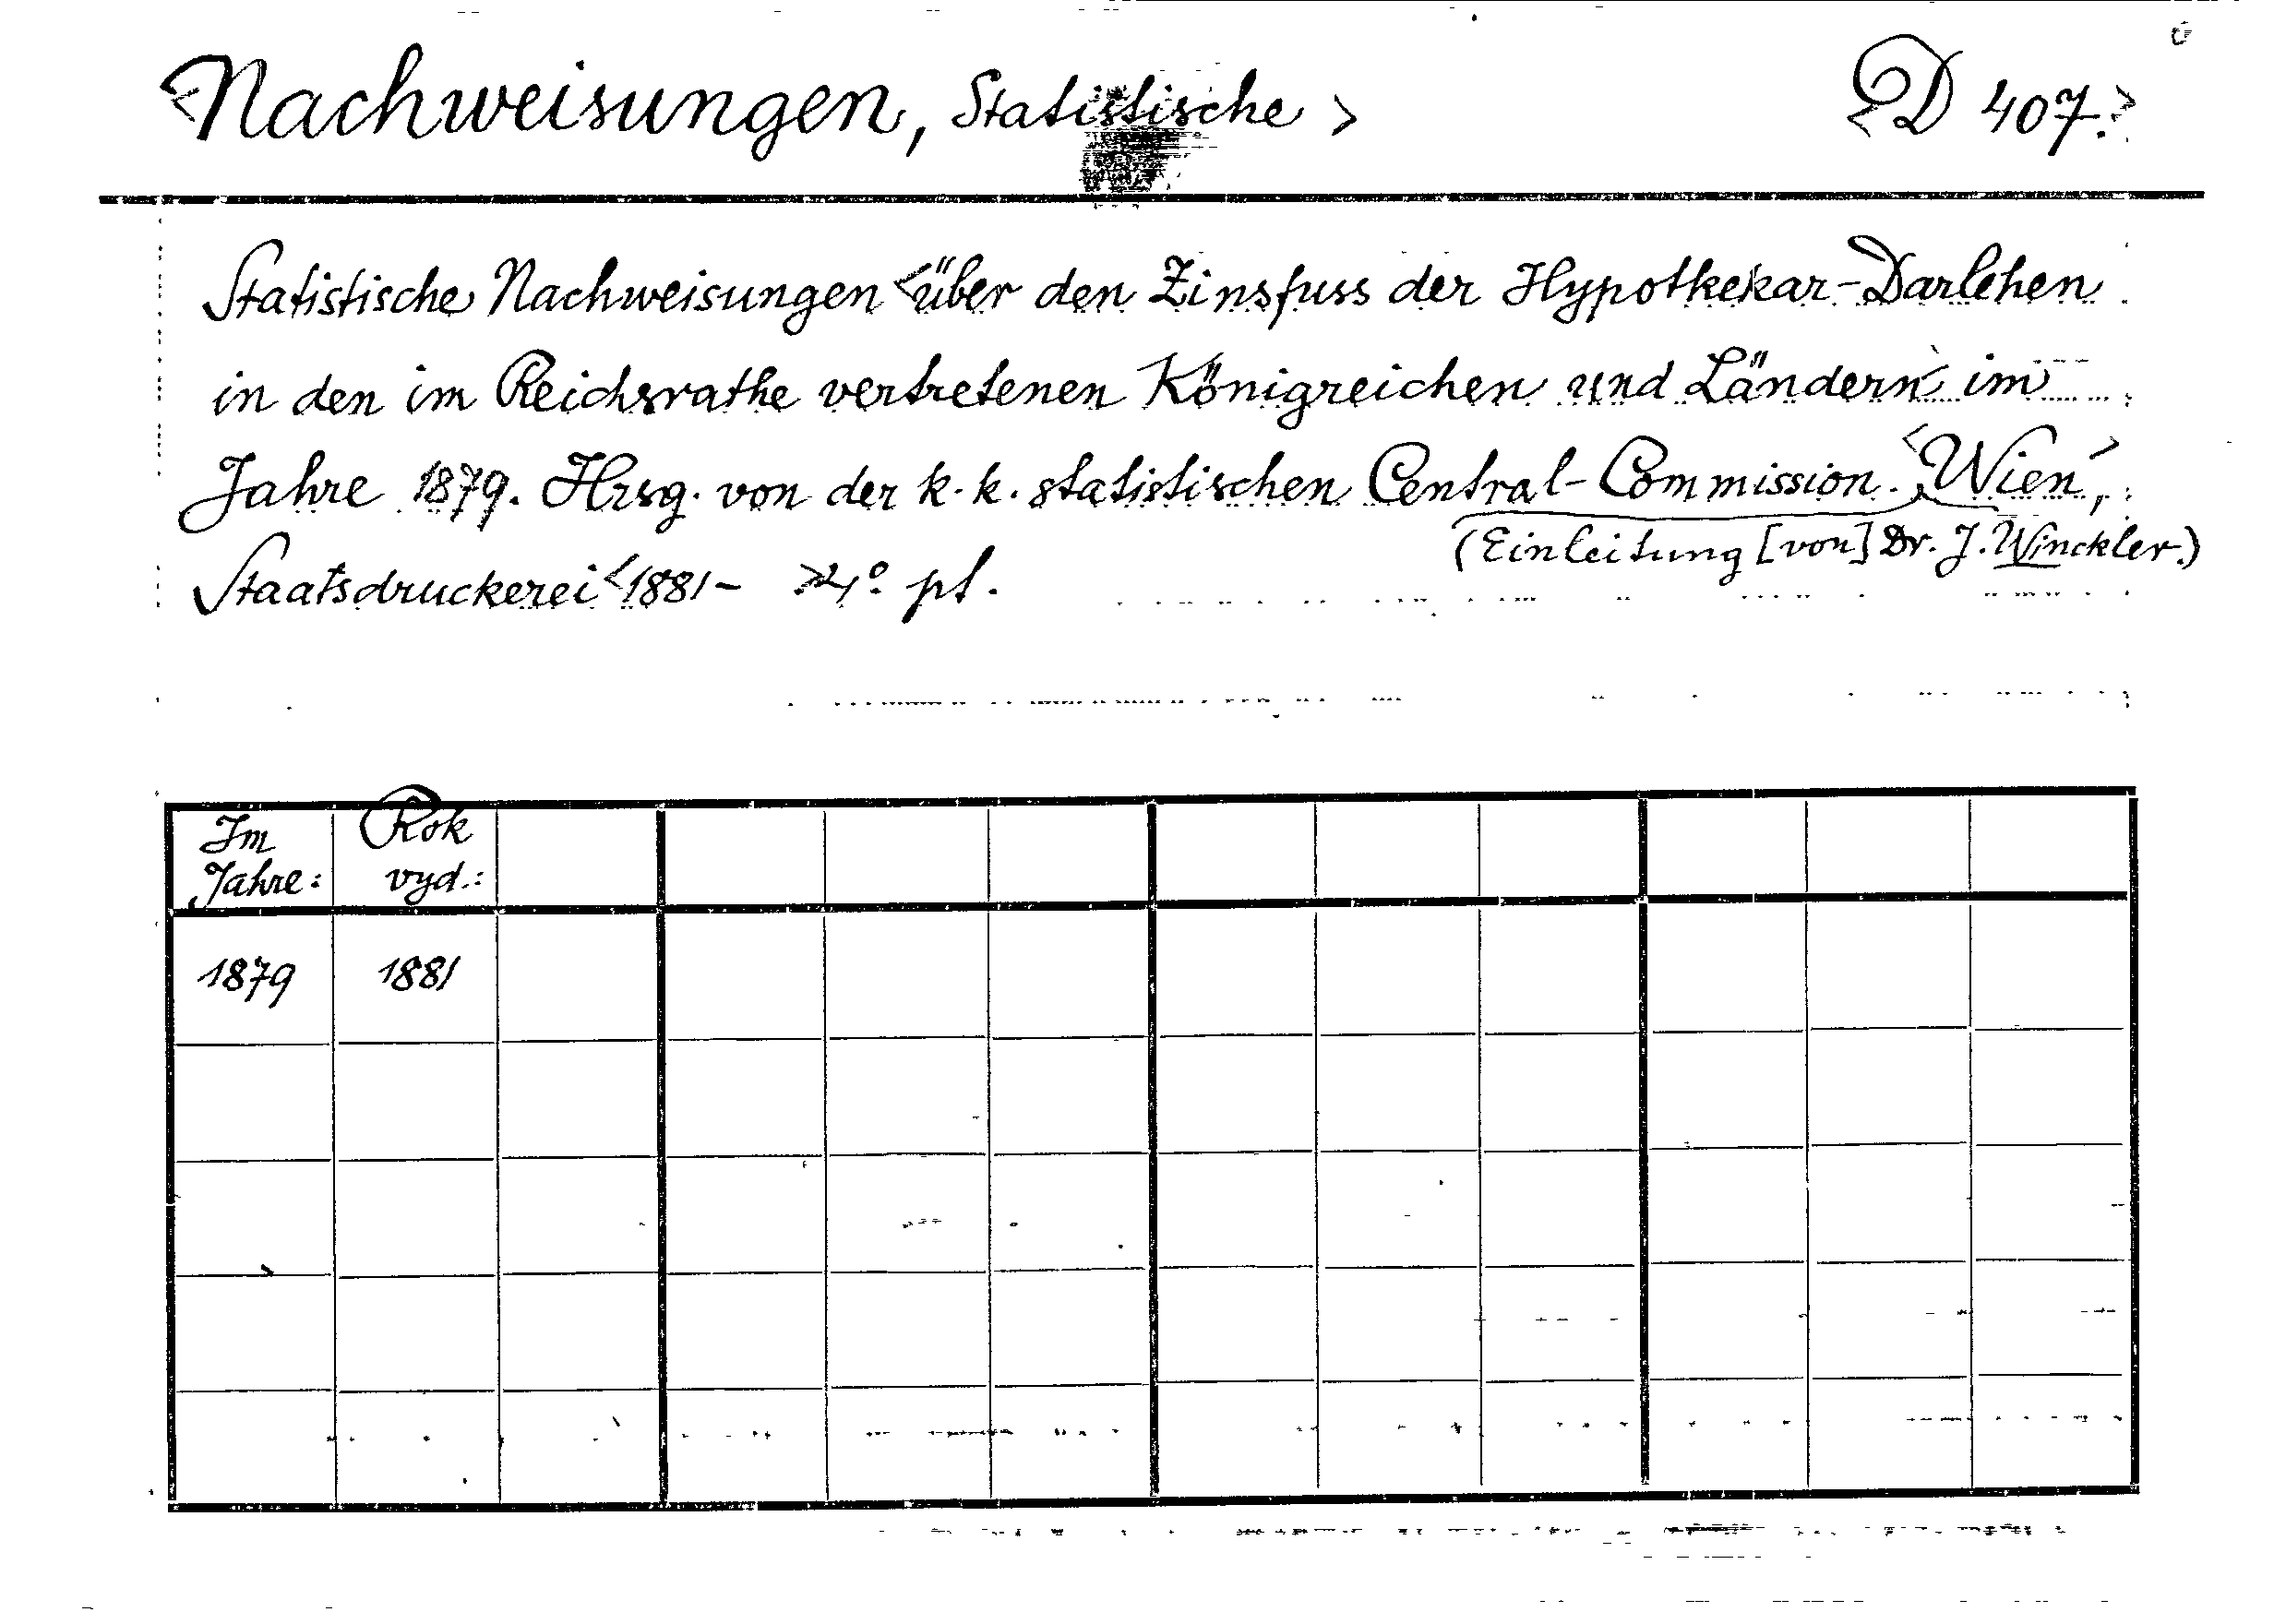 <Nachweisungen, Statistische> <D 407.>
Statistische Nachweisungen <über den Zinsfuss der Hypothekar-Darlehen
in den im Reichsrathe vertretenen Königreichen und Ländern im
Jahre 1879. Hrsg. von der k. k. statistischen Central-Commission. <Wien,>
(Einleitung [von] Dr. J. Winckler.)
Staatsdruckerei <1881- >4° pl.
Im Jahre: Rok vyd.:
1879 1881